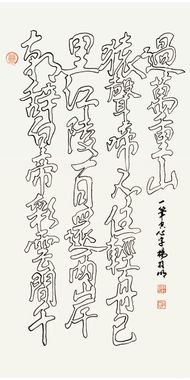 朝辭白帝彩雲間千
里江陵一日還兩岸
猿聲啼不住輕舟已
過萬重山
一筆空心字楊